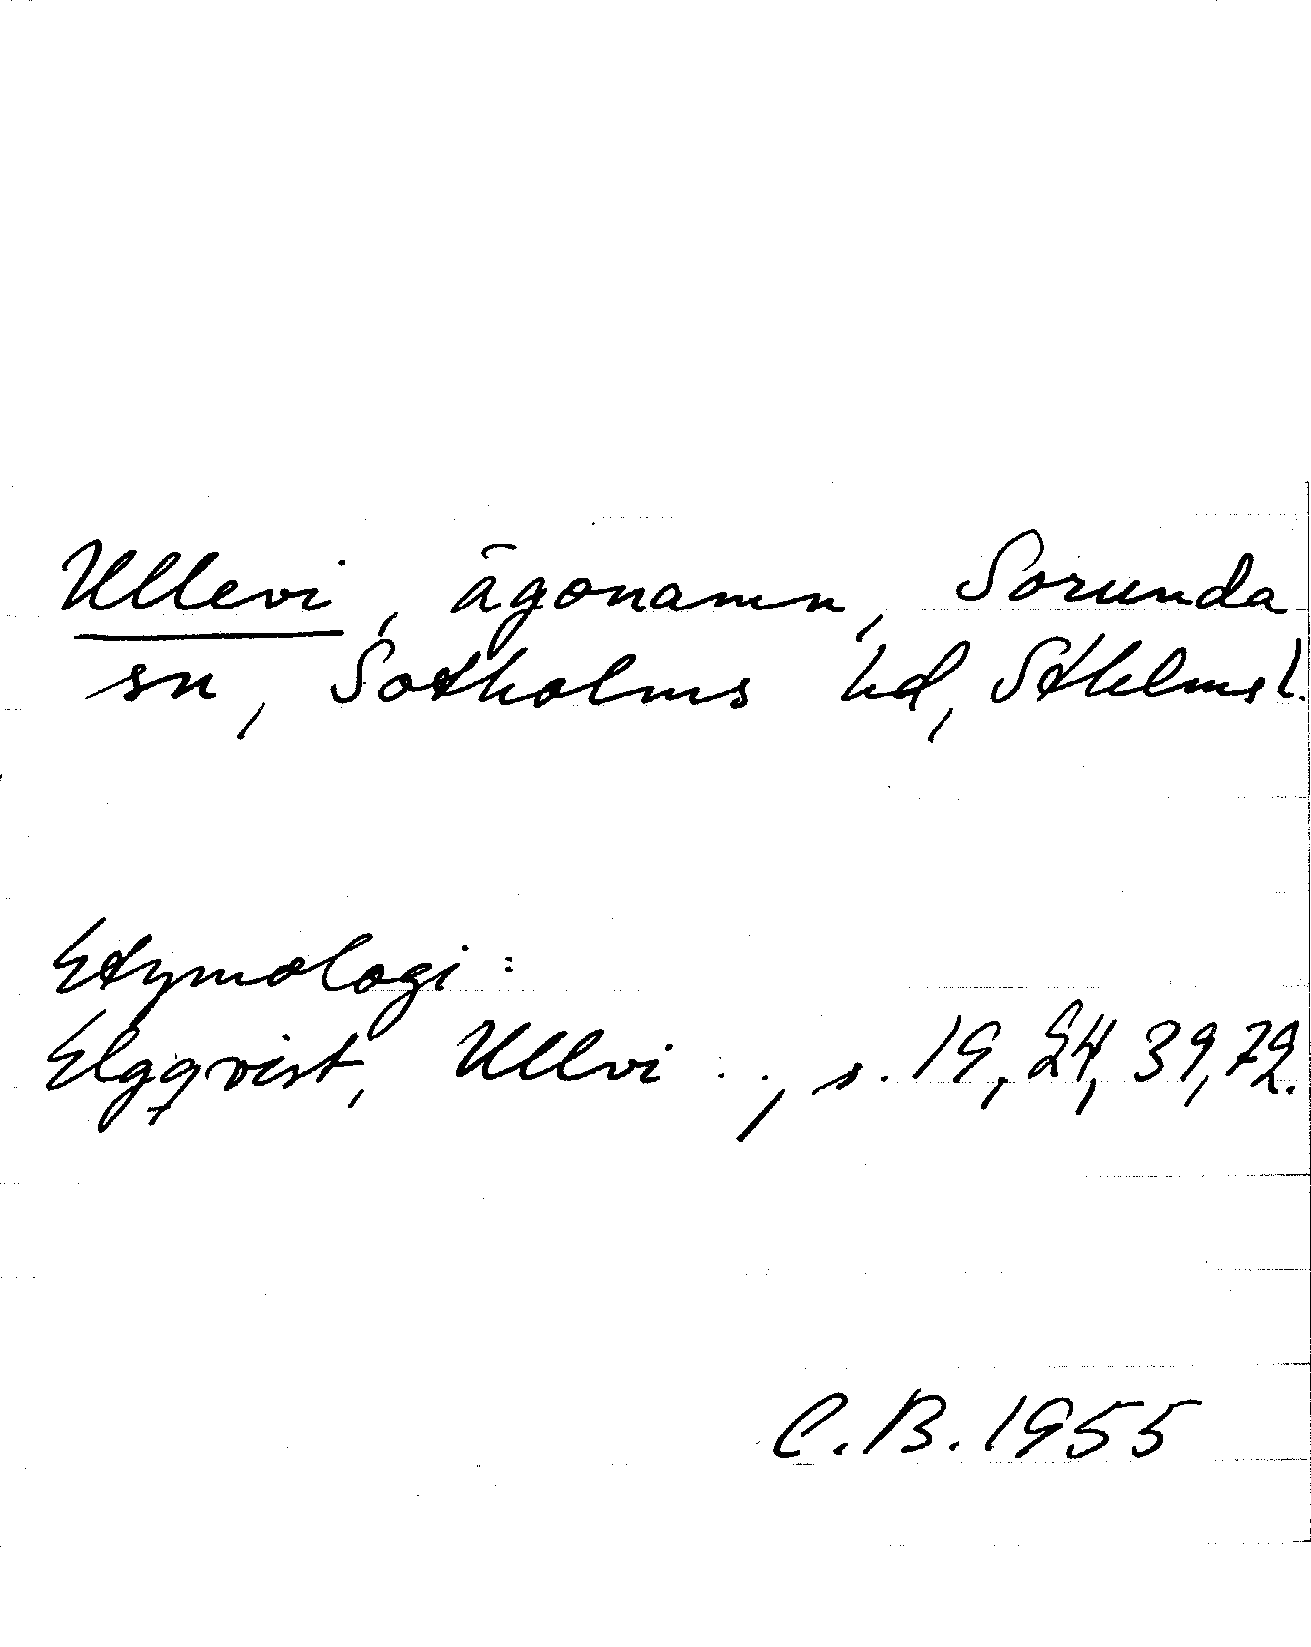 Ullevi, ägonamn, Sorunda
sn, Sotholms hd, Sthlmsl.
Etymologi:
Elgqvist, Ullvi . ., s. 19, 24, 39, 72.
C.B. 1955